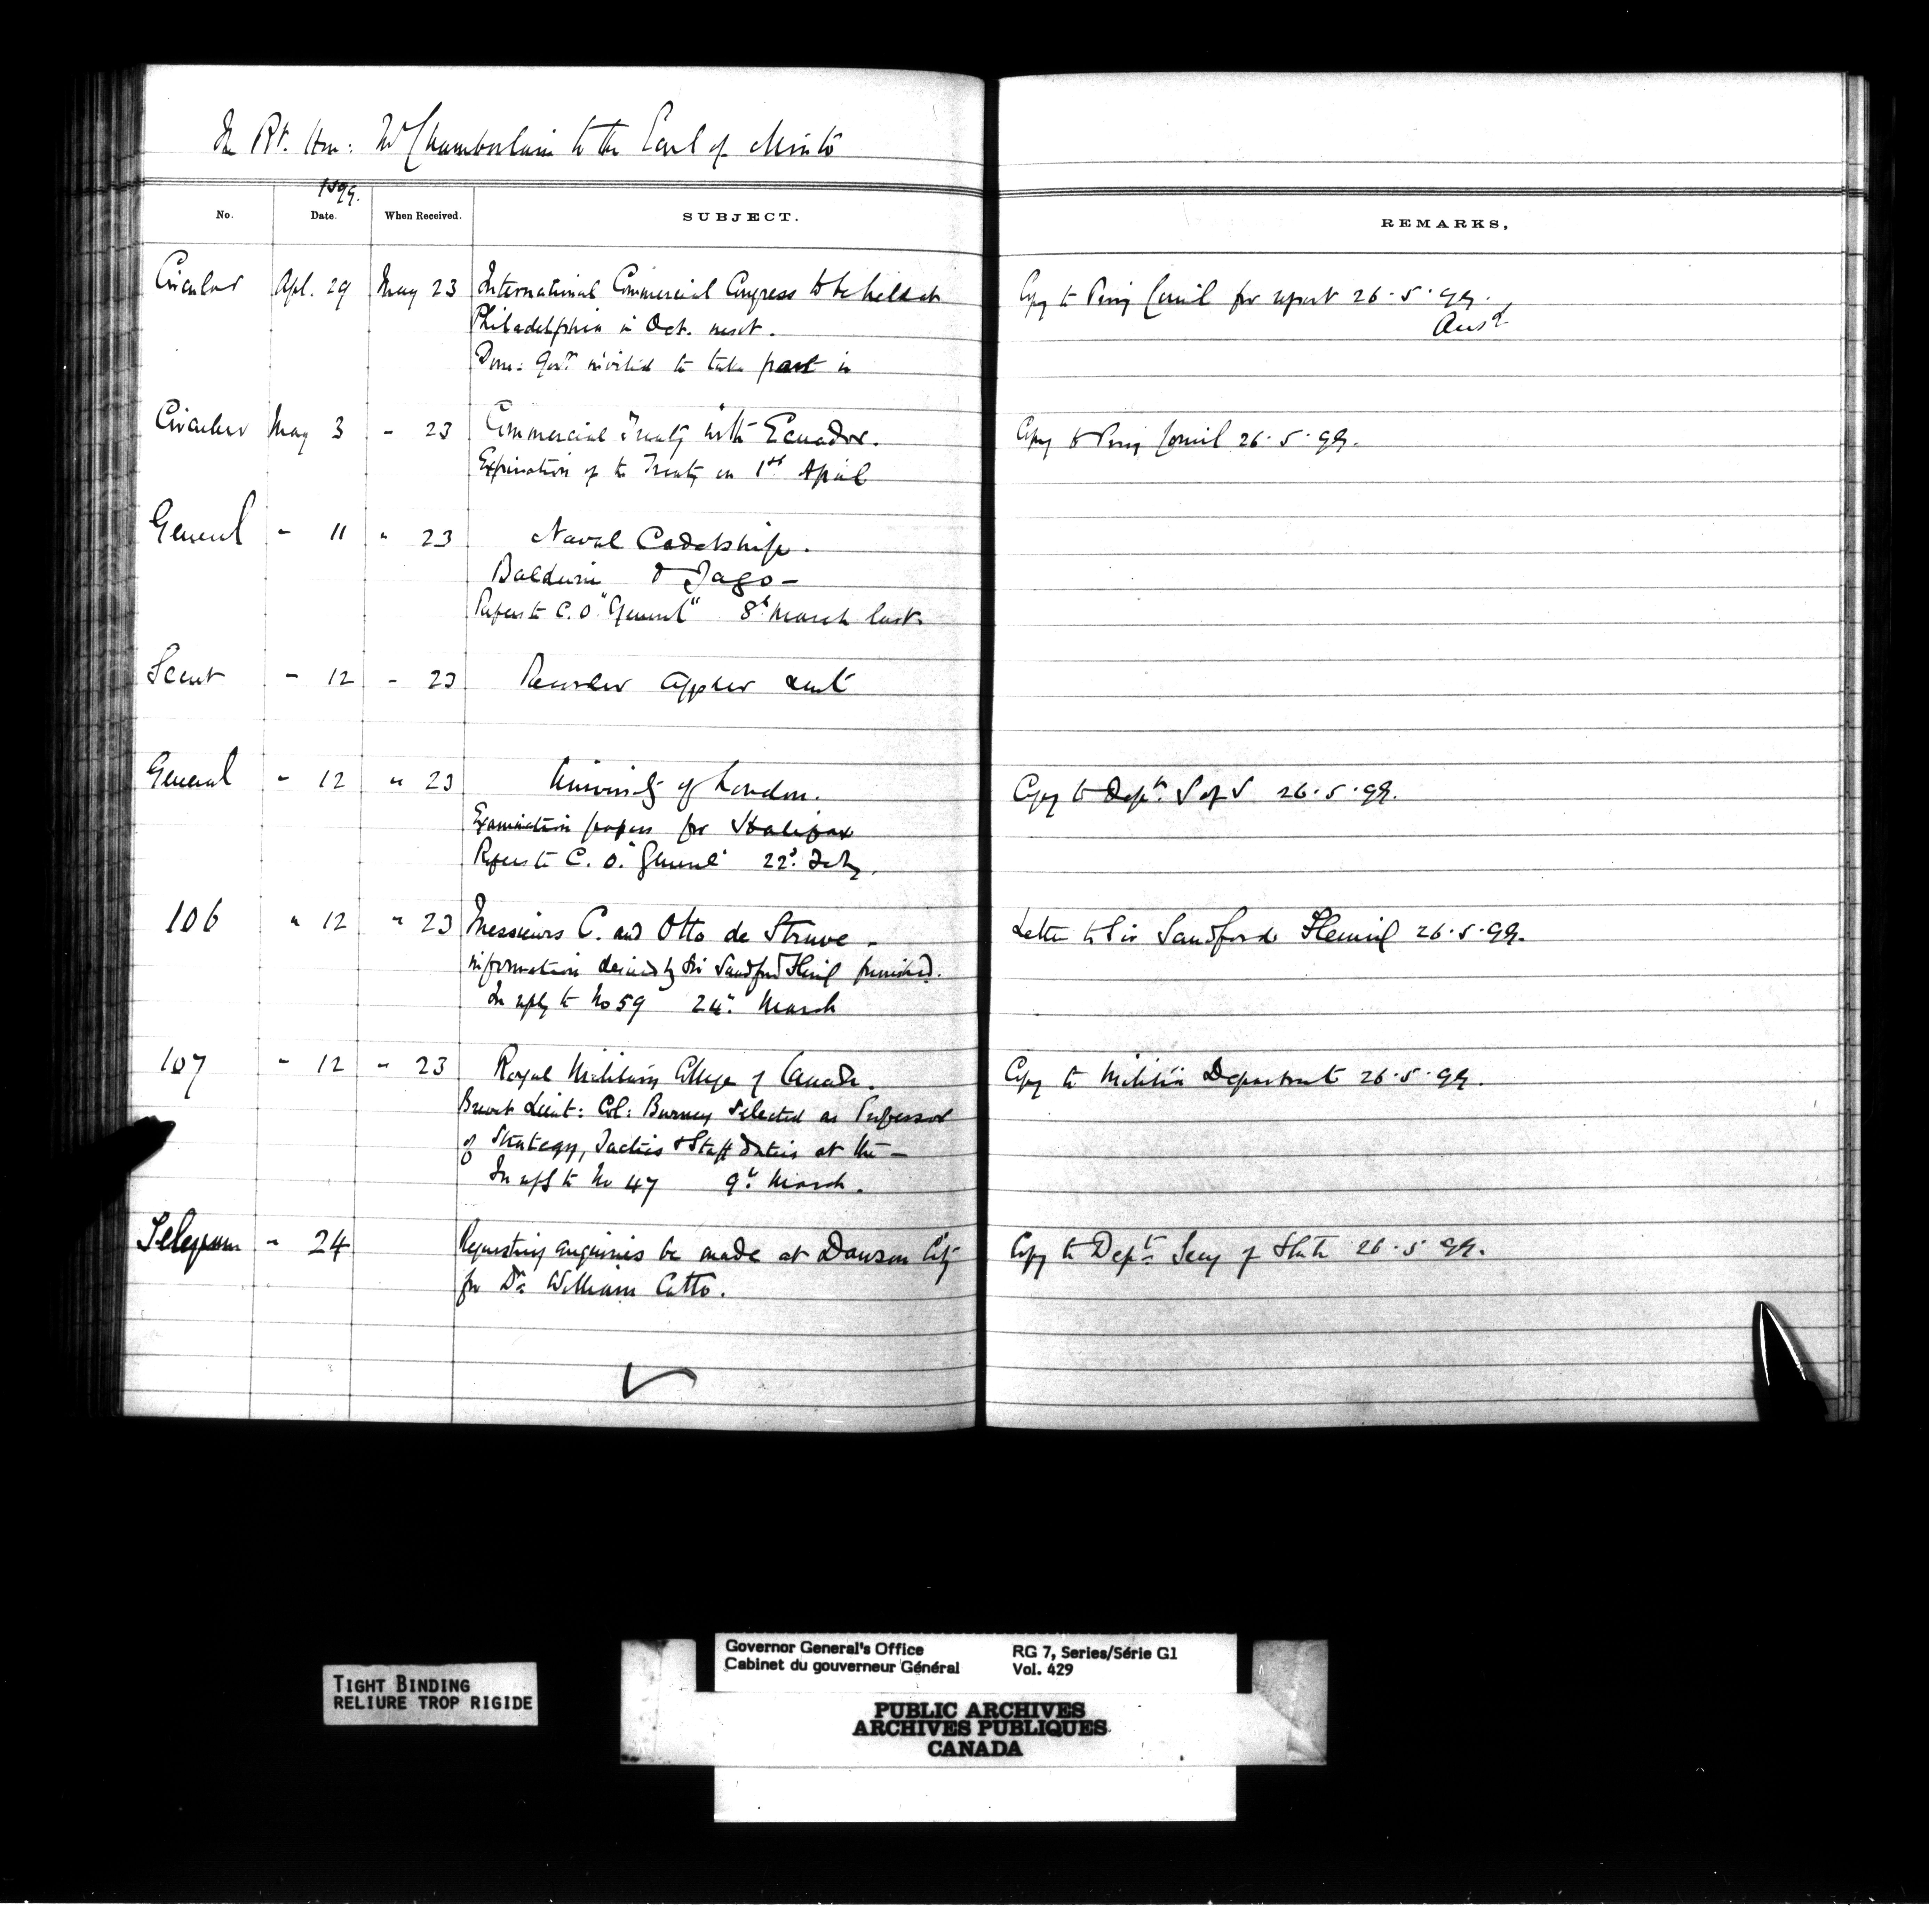 The Rt. Hon: Mr Chamberlain to the Earl of Minto
1899.
No. Date. When Received. SUBJECT. REMARKS,
Circular Apl. 29 May 23 International Commercial Congress to be held at
Philadelphia in Oct. next.
Dom: Govt. invited to take part in
Copy to Privy Council for report 26.5.99.
Ansd.
Circular May 3 " 23 Commercial Treaty with Ecuador.
Expiration of the Treaty on 1st April
Copy to Privy Council 26.5.99.
General " 11 " 23 Naval Cadetships.
Baldwin & Jago -
Refers to C.O. "General" 8th March last.
Secret " 12 " 23 sent
General " 12 " 23 University of London.
Examination papers for Halifax
Refers to C.O. "General" 22d. Feby.
Copy to Dept. S of S 26.5.99.
106 " 12 " 23 Messieurs C. and Otto de Struve -
information desired by Sir Sandford Fleming furnished.
In reply to No 59 24th. March
Letter to Sir Sandford Fleming 26.5.99.
107 " 12 " 23 Royal Military College of Canada.
Brevet Lieut: Col: Burney selected as Professor
of Strategy, Tactics & Staff duties at the -
In reply to No 47 9th. March.
Copy to Militia Department 26.5.99.
Telegram " 24 Requesting enquiries be made at Dawson City
for Dr. William Catto.
Copy to Dept. Secy of State 26.5.99.
TIGHT BINDING
RELIURE TROP RIGIDE
Governor General's Office RG 7, Series/Série G1
Cabinet du gouverneur Général Vol. 429
PUBLIC ARCHIVES
ARCHIVES PUBLIQUES
CANADA